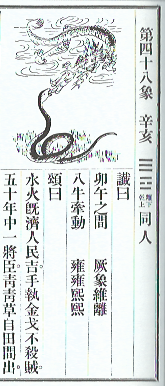 第四十八象 辛亥 ䷌ 離下乾上 同人
讖曰
卯午之間 厥象維離
八牛牽動 雍雍熙熙
頌曰
水火既濟人民吉手執金戈不殺賊
五十年中一將臣青青草自田間出